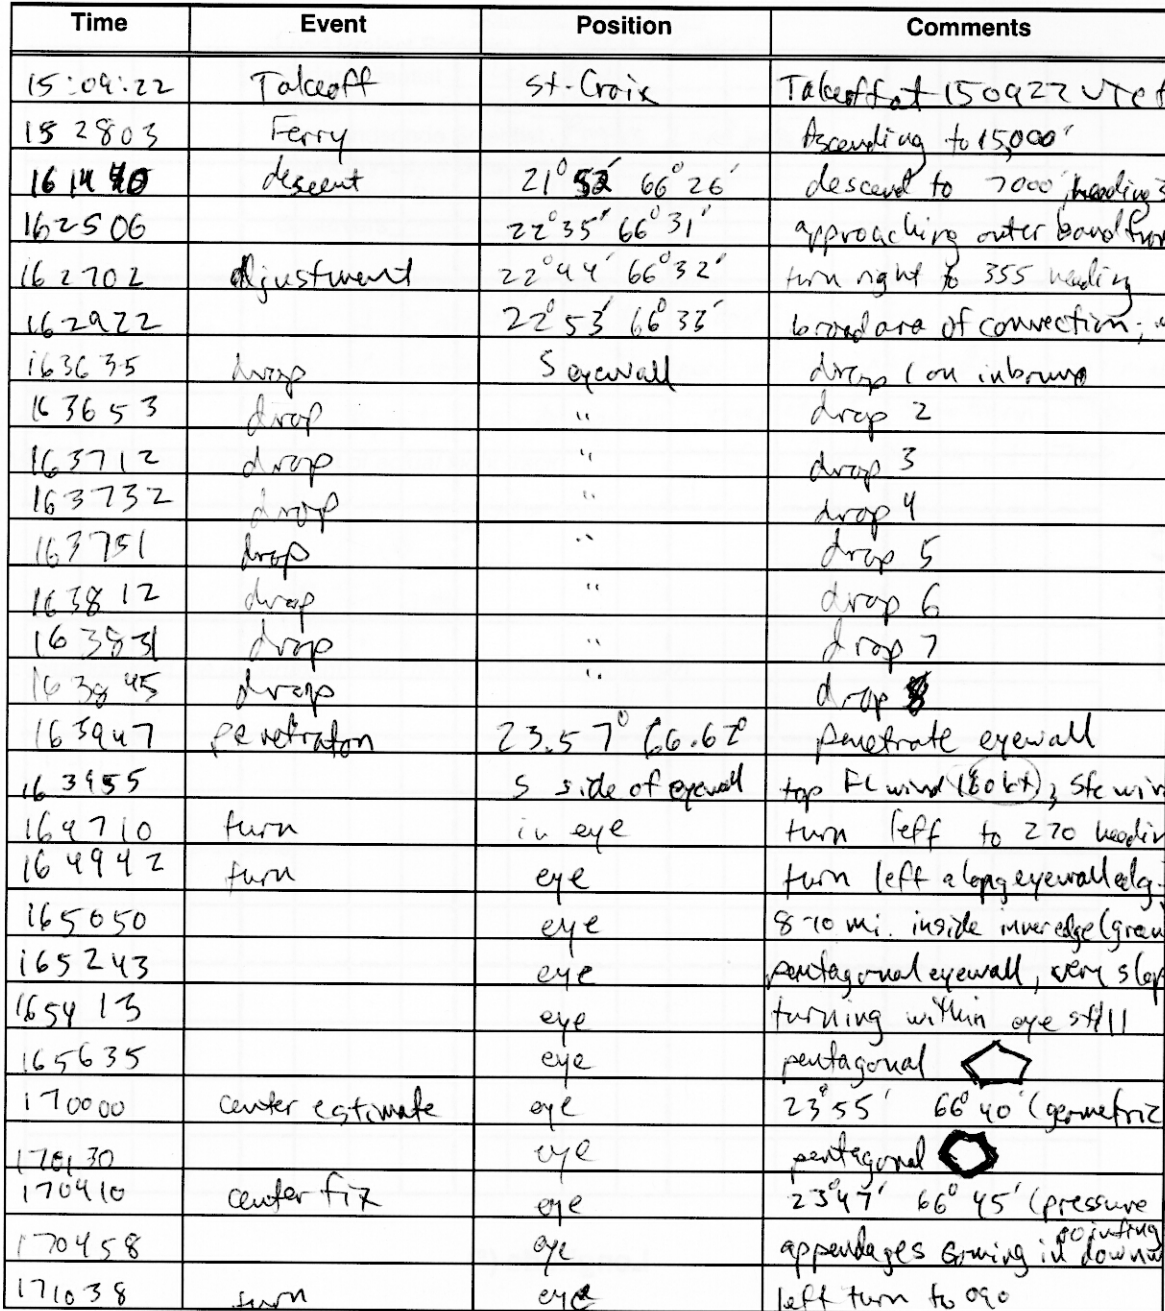 Time Event Position Comments
15:09:22 Takeoff St. Croix Takeoff at 150922 UTC f
152803 Ferry Ascending to 15,000'
descent 21° 52' 66° 26' descend to 7000', heading 3
162506 22° 35' 66° 31' approaching outer band from
162702 Adjustment 22° 44' 66° 32' turn right to 355 heading
162922 22° 53' 66° 33' broad area of convection;
163635 drop S eyewall drop 1 on inbound
163653 drop " drop 2
163712 drop " drop 3
163732 drop " drop 4
163751 drop " drop 5
163812 drop " drop 6
163831 drop " drop 7
163845 drop " drop 8
163947 penetraton 23.57° 66.62° penetrate eyewall
163955 S side of eyewall top FL wind (180 kt), sfc win
164710 turn in eye turn left to 270 headin
164942 turn eye turn left along eyewall edg
165050 eye 8-10 mi. inside inner edge (grau
165243 eye pentagonal eyewall, very slop
165413 eye turning within eye still
165635 eye pentagonal
170000 center estimate eye 23° 55' 66° 40' (geometric
170130 eye pentagonal
170410 center fix eye 23° 47' 66° 45' (pressure
pointing
170458 eye appendages coming in downw
171038 turn eye left turn to 090